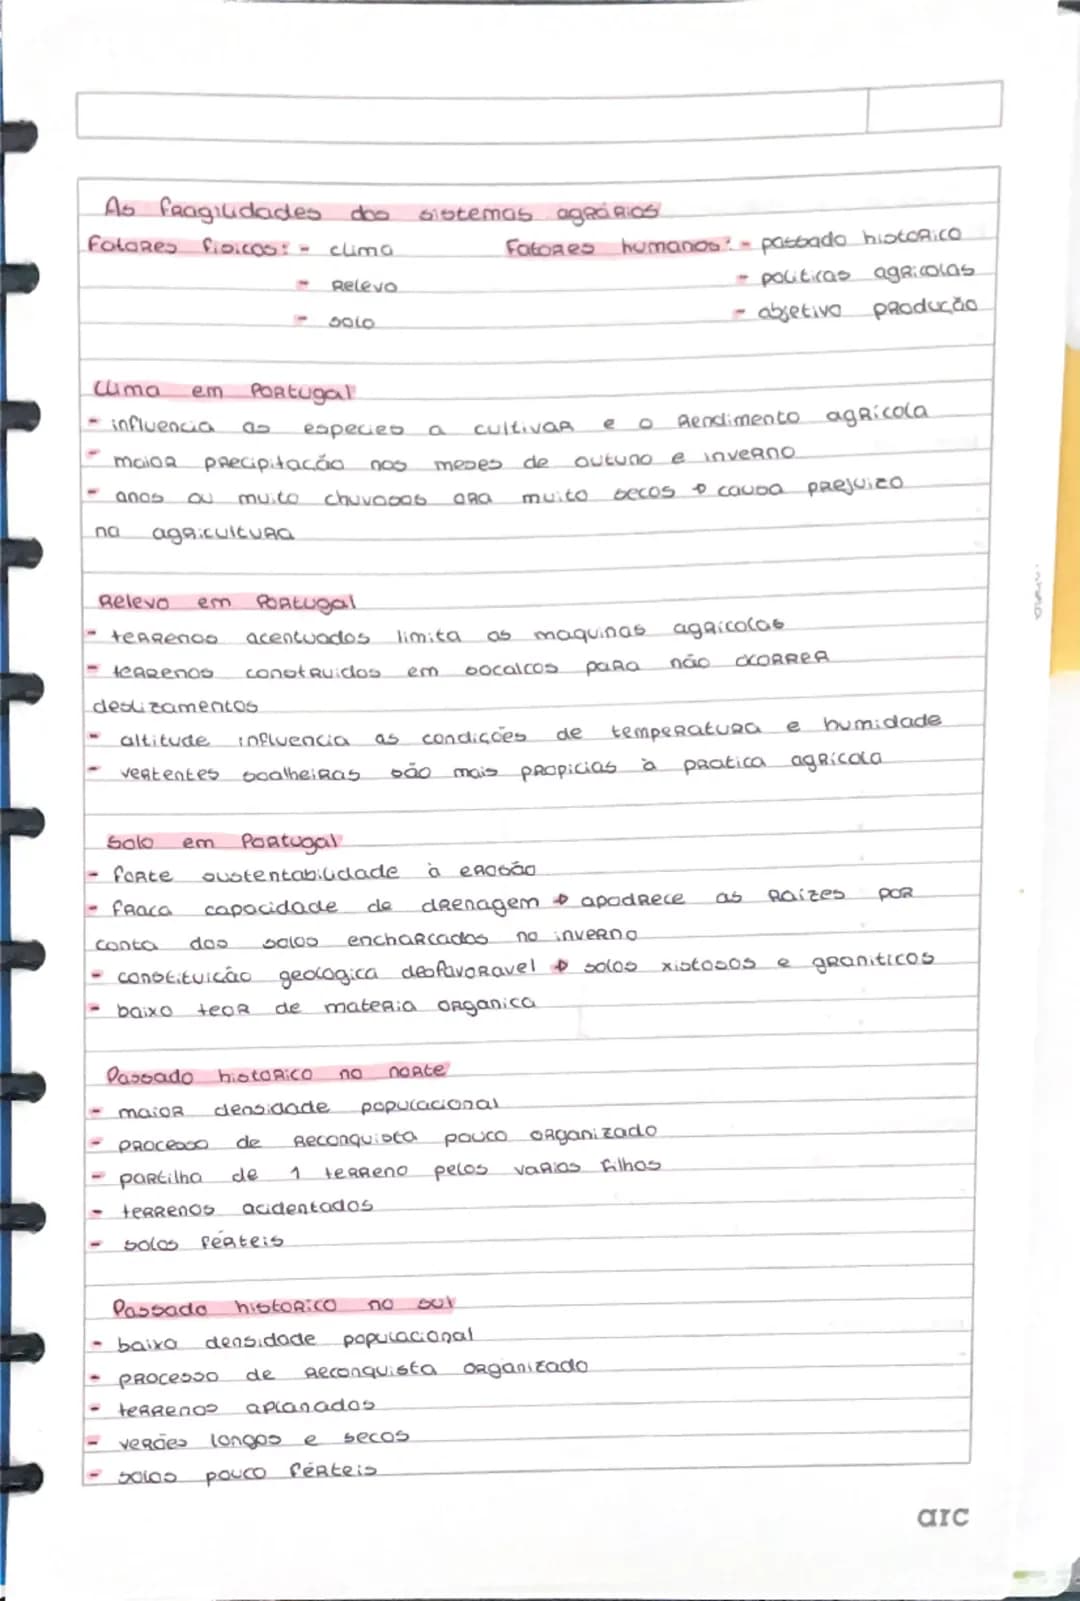 As fragilidades dos sistemas agrários
Fatores físicos: - clima Fatores humanos: - passado historico
- Relevo - politicas agricolas
- solo - objetivo produção
Clima em Portugal
- influencia as especies a cultivar e o Rendimento agrícola
- maior precipitação nos meses de outuno e inverno
- anos ou muito chuvosos ora muito secos → causa prejuizo
na agricultura
Relevo em Portugal
- terrenos acentuados limita as maquinas agricolas
- terrenos construidos em socalcos para não ocorrer
deslizamentos
- altitude influencia as condições de temperatura e humidade
- vertentes soalheiras são mais propicias à pratica agrícola
Solo em Portugal
- forte sustentabilidade à erosão
- fraca capacidade de drenagem → apodrece as raízes por
conta dos solos encharcados no inverno
- constituição geologica desfavoravel → solos xistosos e graniticos
- baixo teor de materia organica
Passado historico no norte
- maior densidade populacional
- processo de Reconquista pouco organizado
- partilha de 1 terreno pelos varios filhos
- terrenos acidentados
- solos férteis
Passado historico no sul
- baixa densidade populacional
- processo de Reconquista organizado
- terrenos aplanados
- verões longos e secos
- solos pouco férteis
arc